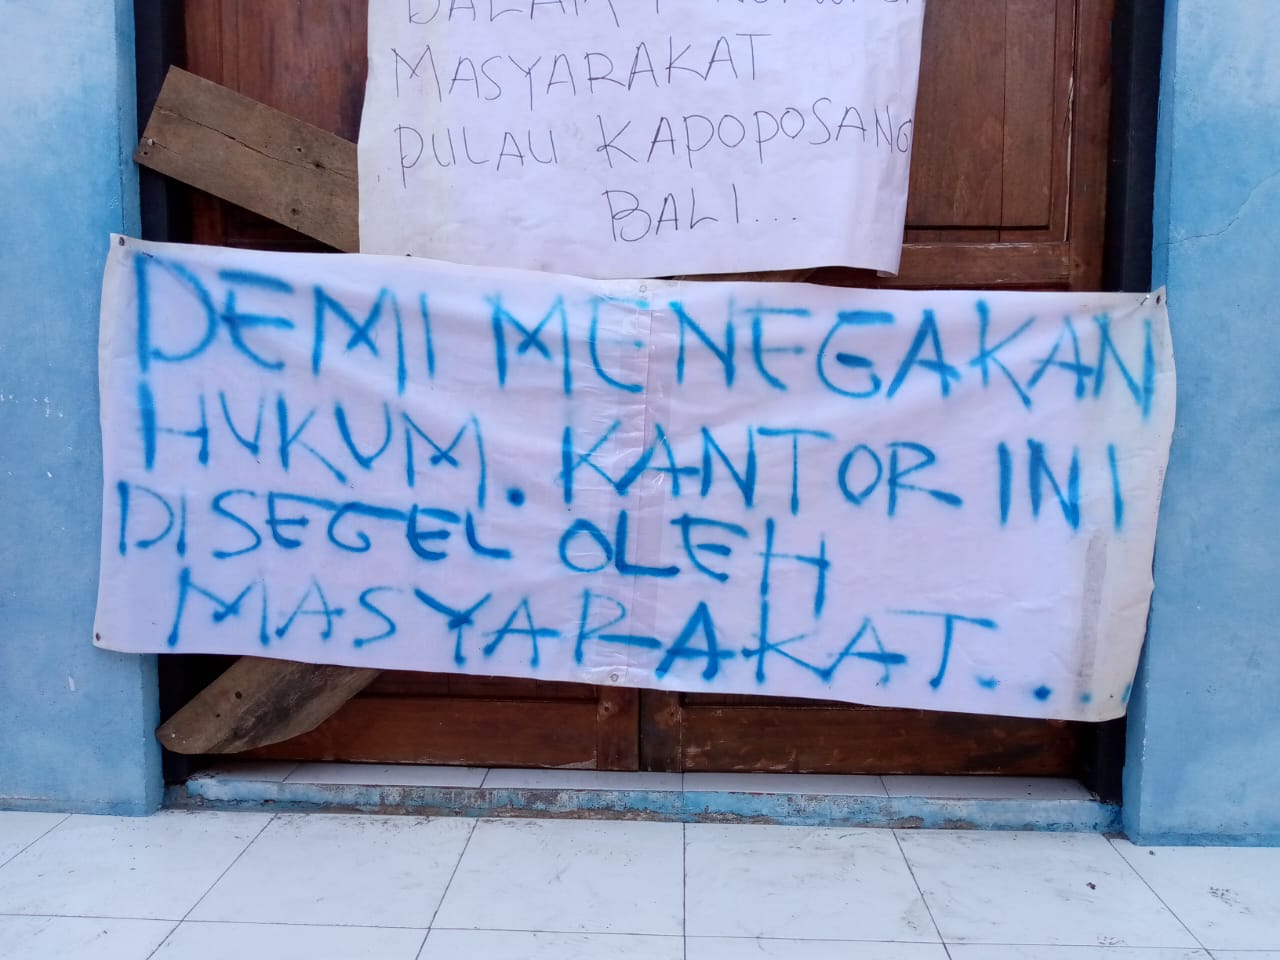 DALAM
MASYARAKAT
PULAU KAPOPOSANG
BALI...
DEMI MENEGAKAN
HUKUM. KANTOR INI
DISEGEL OLEH
MASYARAKAT....